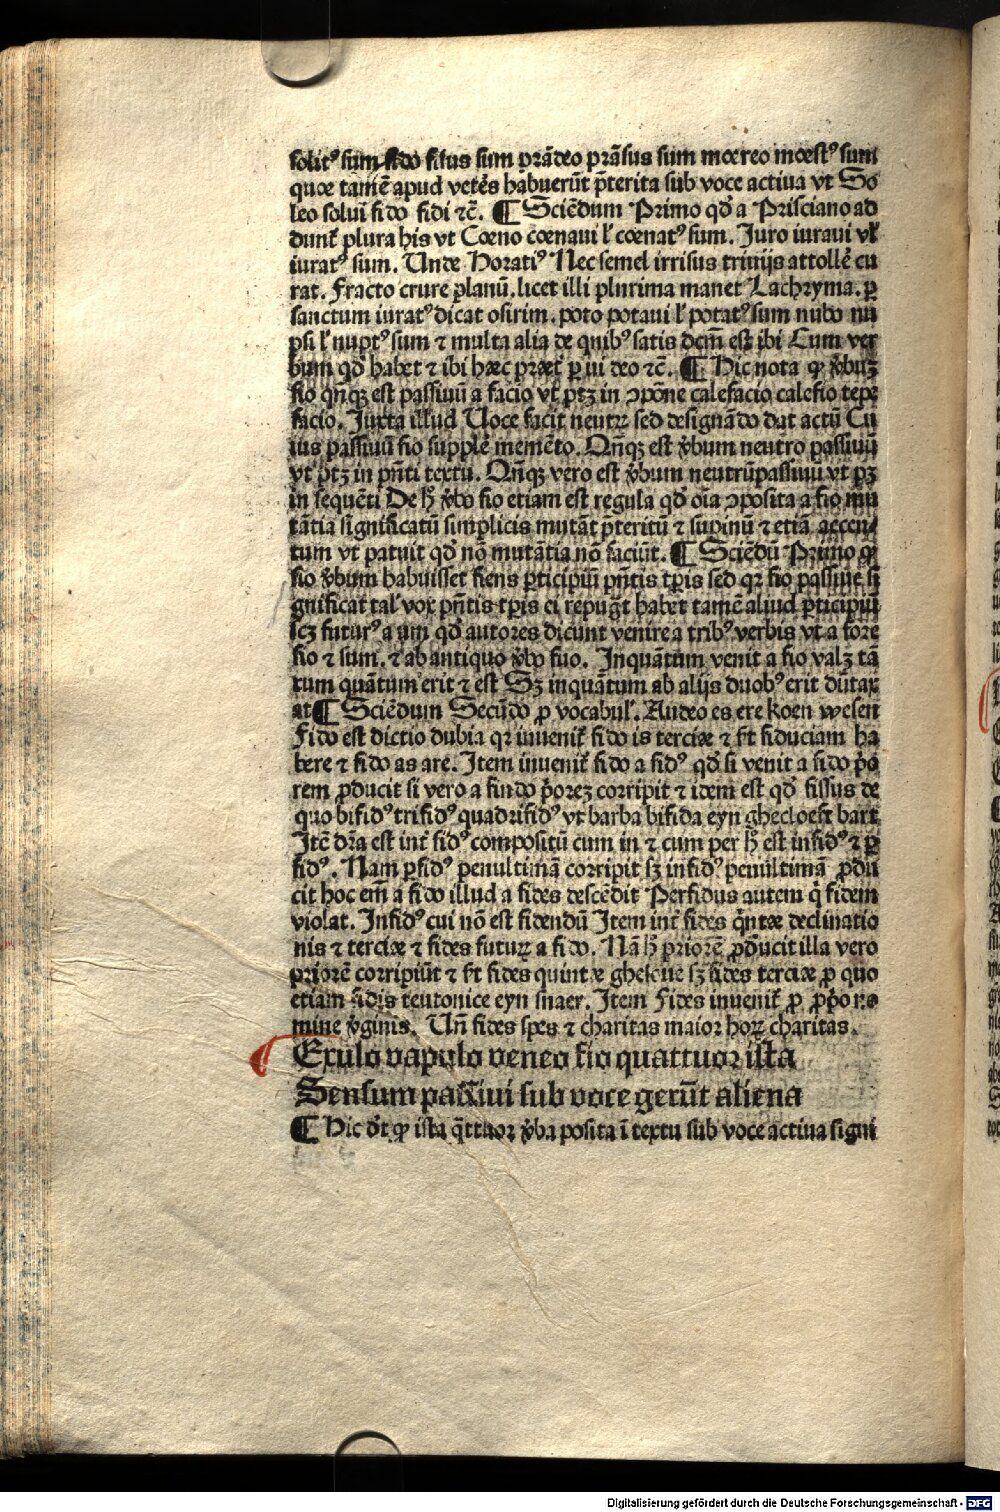 solitꝰ sum fido fisus sum prādeo prāsus sum moereo moestꝰ sum
quoe tamē apud veteŝ habuerūt p̄terita sub voce actiua vt So
leo solui fido fidi ⁊c̄. ¶ Sciēdum Primo qd̓ a Prisciano ad
dunt̄ plura his vt Coeno coenaui ľ coenatꝰ sum. Juro iuraui vľ
iuratꝰ sum. Unde Horatiꝰ Nec semel irrisus triuijs attollē cu
rat. Fracto crure planū. licet illi plurima manet Lachryma. ꝑ
sanctum iuratꝰ dicat osirim. poto potaui ľ potatꝰ sum nubo nu
psi ľ nuptꝰ sum ⁊ multa alia de quibꝰ satis dcm̄ est ibi Cum ver
bum qd̓ habet ⁊ ibi haec praet̄ ꝑ ui deo ⁊c̄. ¶ Hic nota ꝙ v̓buꝫ
fio qn̄qꝫ est passiuū a facio vt ptꝫ in ꝯpōne calefacio calefio tepe
facio. Juxta illud Uoce facit neutꝝ sed designādo dat actū Cu
ius passiuū fio supplē memēto. Qn̄qꝫ est v̓bum neutro passiuū
vt ptꝫ in pn̄ti textu. Qn̄qꝫ vero est v̓bum neutrūpassiuu vt pꝫ
in sequēti De h̄ v̓bo fio etiam est regula qd̓ oīa ꝯposita a fio mu
tātia significatū simplicis mutāt p̄teritū ⁊ supinū ⁊ etiā accen
tum vt patuit qd̓ nō mutātia nō faciūt. ¶ Sciēdū Primo ꝙ
fio v̓bum habuisset fiens ꝑticipiū pn̄tis tꝑis sed qꝛ fio passiue si
gnificat taľ vox pn̄tis tꝑis ei repugt̄ habet tamē aliud ꝑticipiū
scꝫ futurꝰ a um qd̓ autores dicunt venire a tribꝰ verbis vt a fore
fio ⁊ sum. ⁊ ab antiquo v̓bo fuo. Inquātum venit a fio valꝫ tā
tum quātum erit ⁊ est Sꝫ inquātum ab alijs duobꝰ erit dūtax
at ¶ Sciēdum Secūdo ꝓ vocabuľ. Audeo es ere koen wesen
Fido est dictio dubia qꝛ inuenit̄ fido is terciae ⁊ sꝉt fiduciam ha
bere ⁊ fido as are. Item inuenit̄ fido a fidꝰ qd̓ si venit a fido p̓o
rem ꝓducit si vero a findo p̓orez corripit ⁊ idem est qd̓ fissus de
quo bifidꝰ trifidꝰ quadrifidꝰ vt barba bifida eyn ghecloeft bart
Itē dr̄a est int̄ fidꝰ compositū cum in ⁊ cum per h̄ est infidꝰ ⁊ ꝑ
fidꝰ. Nam ꝑfidꝰ penultimā corripit sꝫ infidꝰ penultimā ꝓdu
cit hoc em̄ a fido illud a fides descēdit Perfidus autem q̓ fidem
violat. Infidꝰ cui nō est fidendū Item int̄ fides q̄ntae declinatio
nis ⁊ terciae ⁊ fides futurꝝ a fido. Nā h̄ priorē ꝓducit illa vero
priorē corripiūt ⁊ sꝉt fides quintae gheloue sꝫ fides terciae ꝓ quo
etiam fidis teutonice eyn snaer. Item Fides inuenit̄ ꝓ ꝓp̓o no
mine v̓ginis. Un̄ fides spes ⁊ charitas maior horꝝ charitas.
Exulo vapulo veneo fio quattuor ista
Sensum passiui sub voce gerūt aliena
¶ Hic dt̓ ꝙ ista q̄ttuor v̓ba posita ī textu sub voce actiua signi
Digitalisierung gefördert durch die Deutsche Forschungsgemeinschaft - DFG